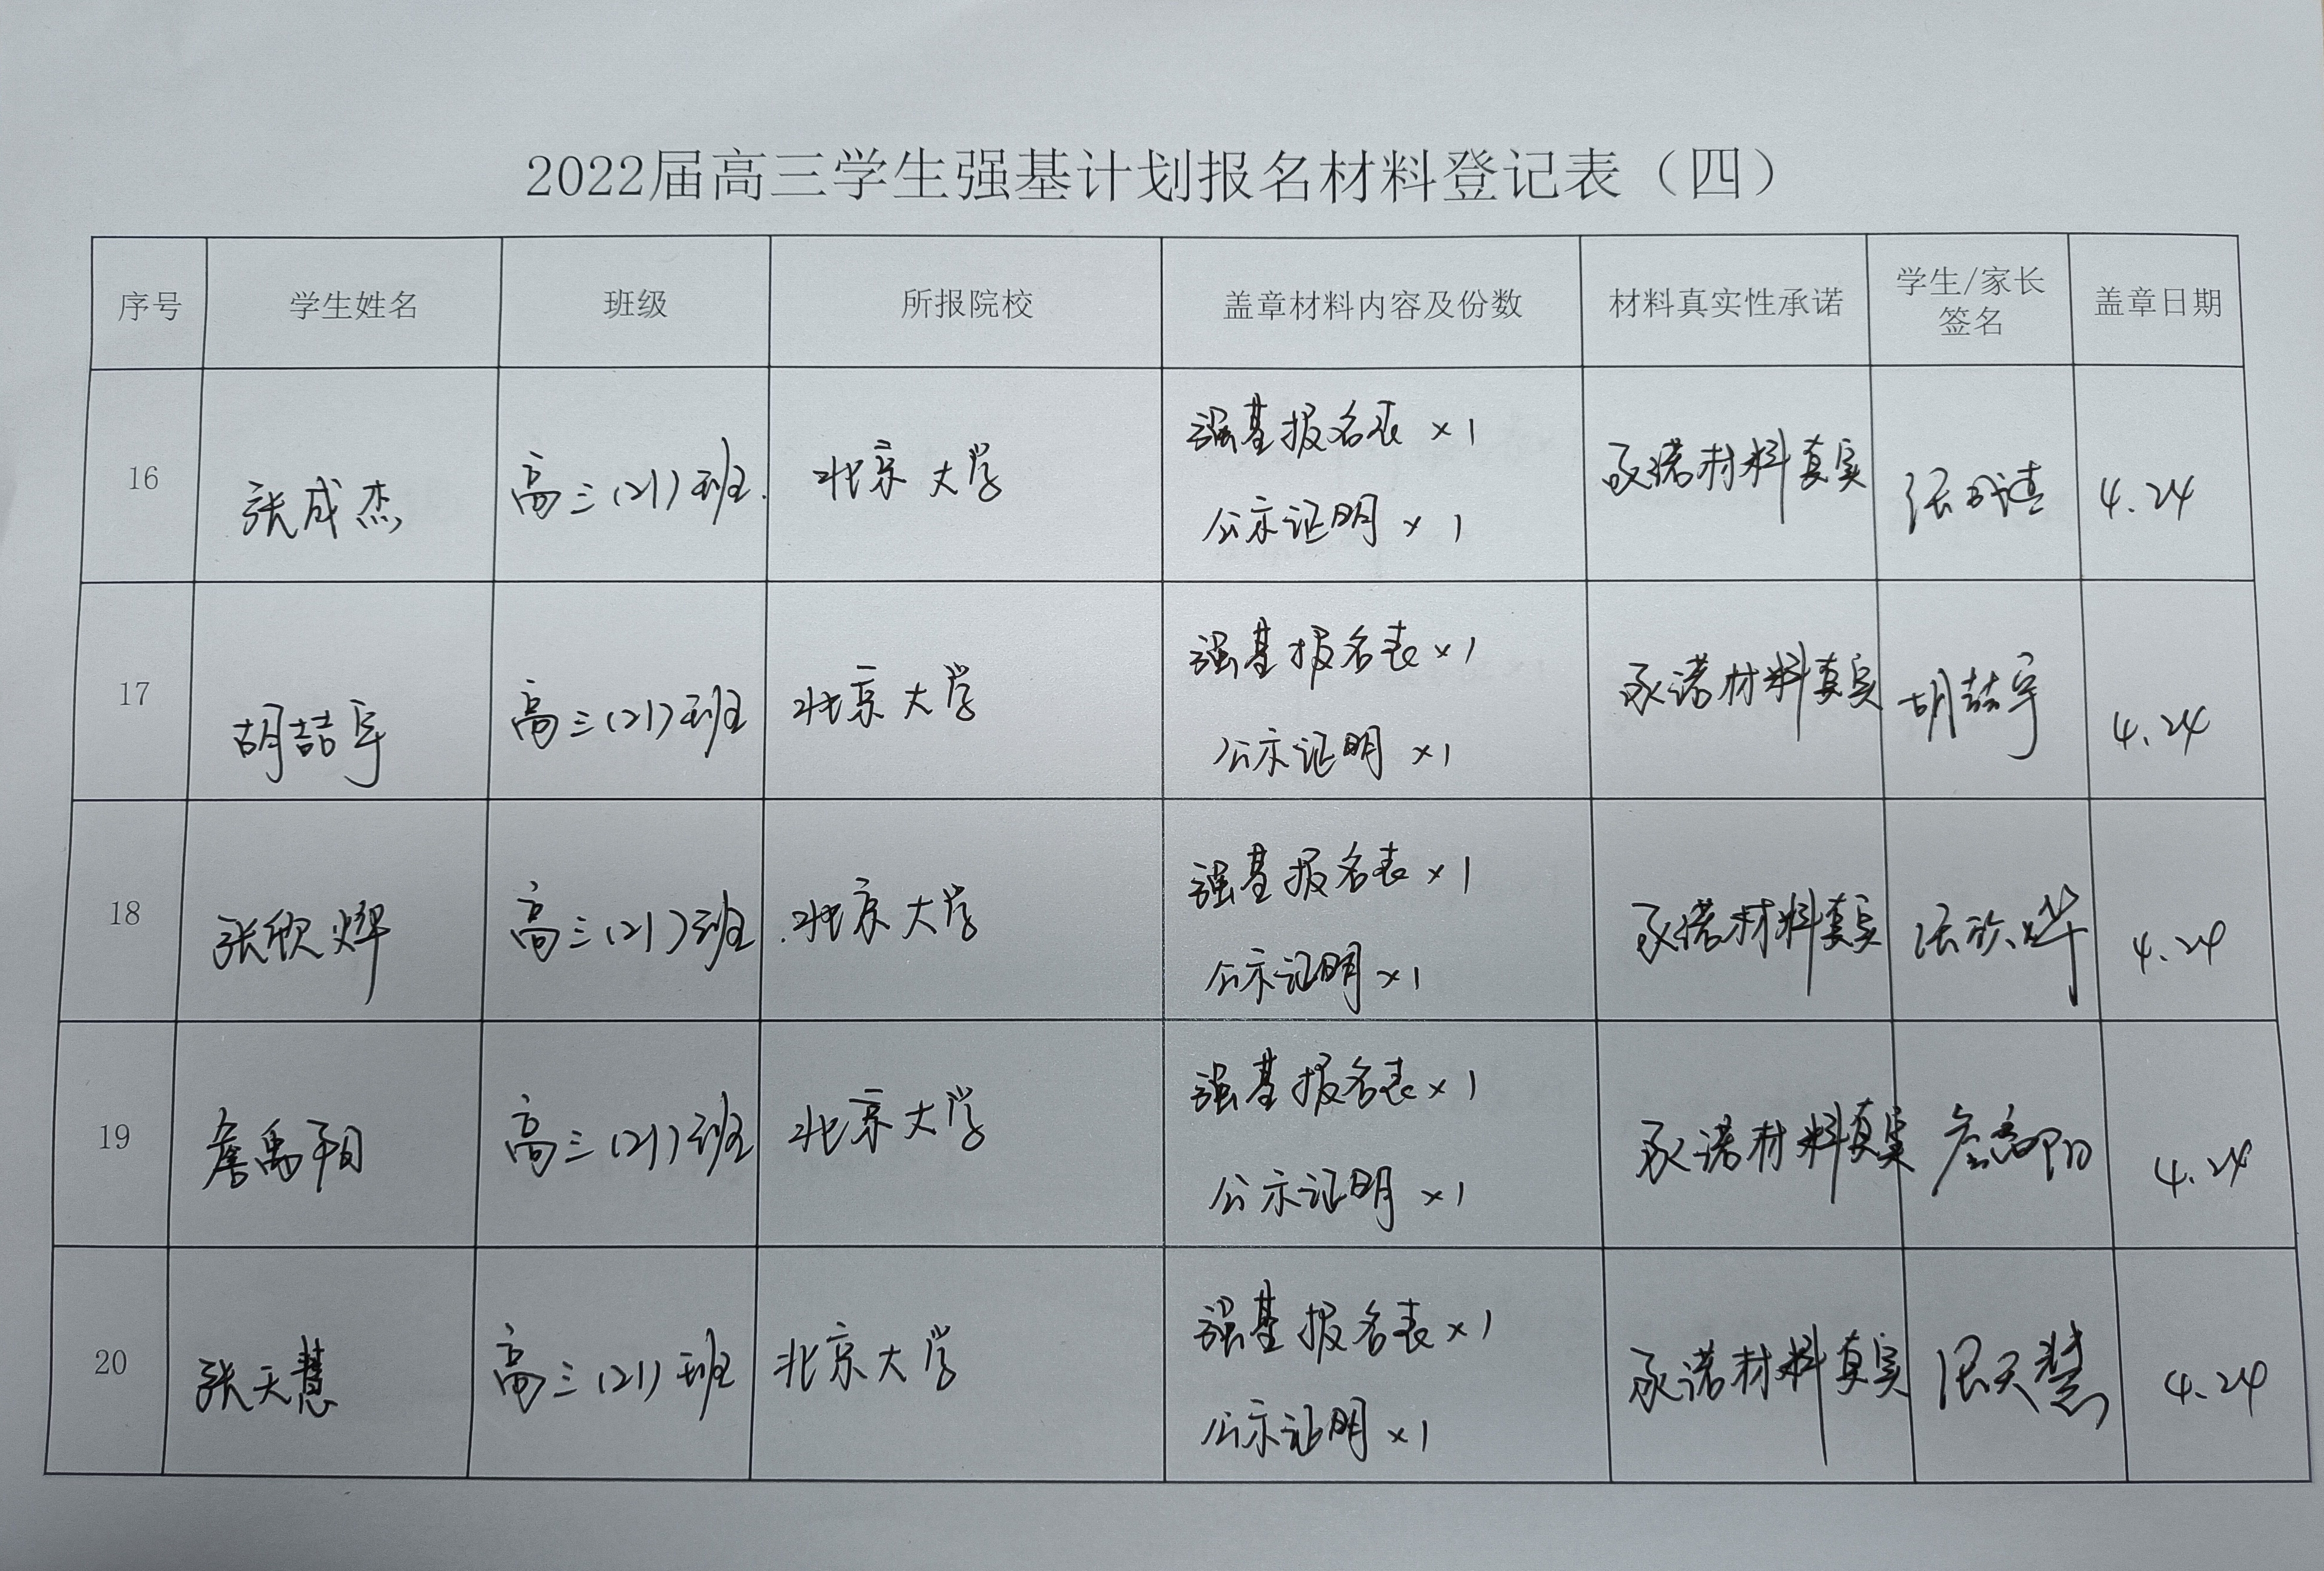 2022届高三学生强基计划报名材料登记表（四）
序号 学生姓名 班级 所报院校 盖章材料内容及份数 材料真实性承诺 学生/家长签名 盖章日期
16 张成杰 高三(21)班. 北京大学 强基报名表×1 承诺材料真实 4.24
公示证明×1
17 胡喆宇 高三(21)班 北京大学 强基报名表×1 承诺材料真实 胡喆宇 4.24
公示证明×1
18 张欣烨 高三(21)班 北京大学 强基报名表×1 承诺材料真实 张欣烨 4.24
公示证明×1
19 詹禹翔 高三(21)班 北京大学 强基报名表×1 承诺材料真实 4.24
公示证明×1
20 张天慧 高三(21)班 北京大学 强基报名表×1 承诺材料真实 张天慧 4.24
公示证明×1